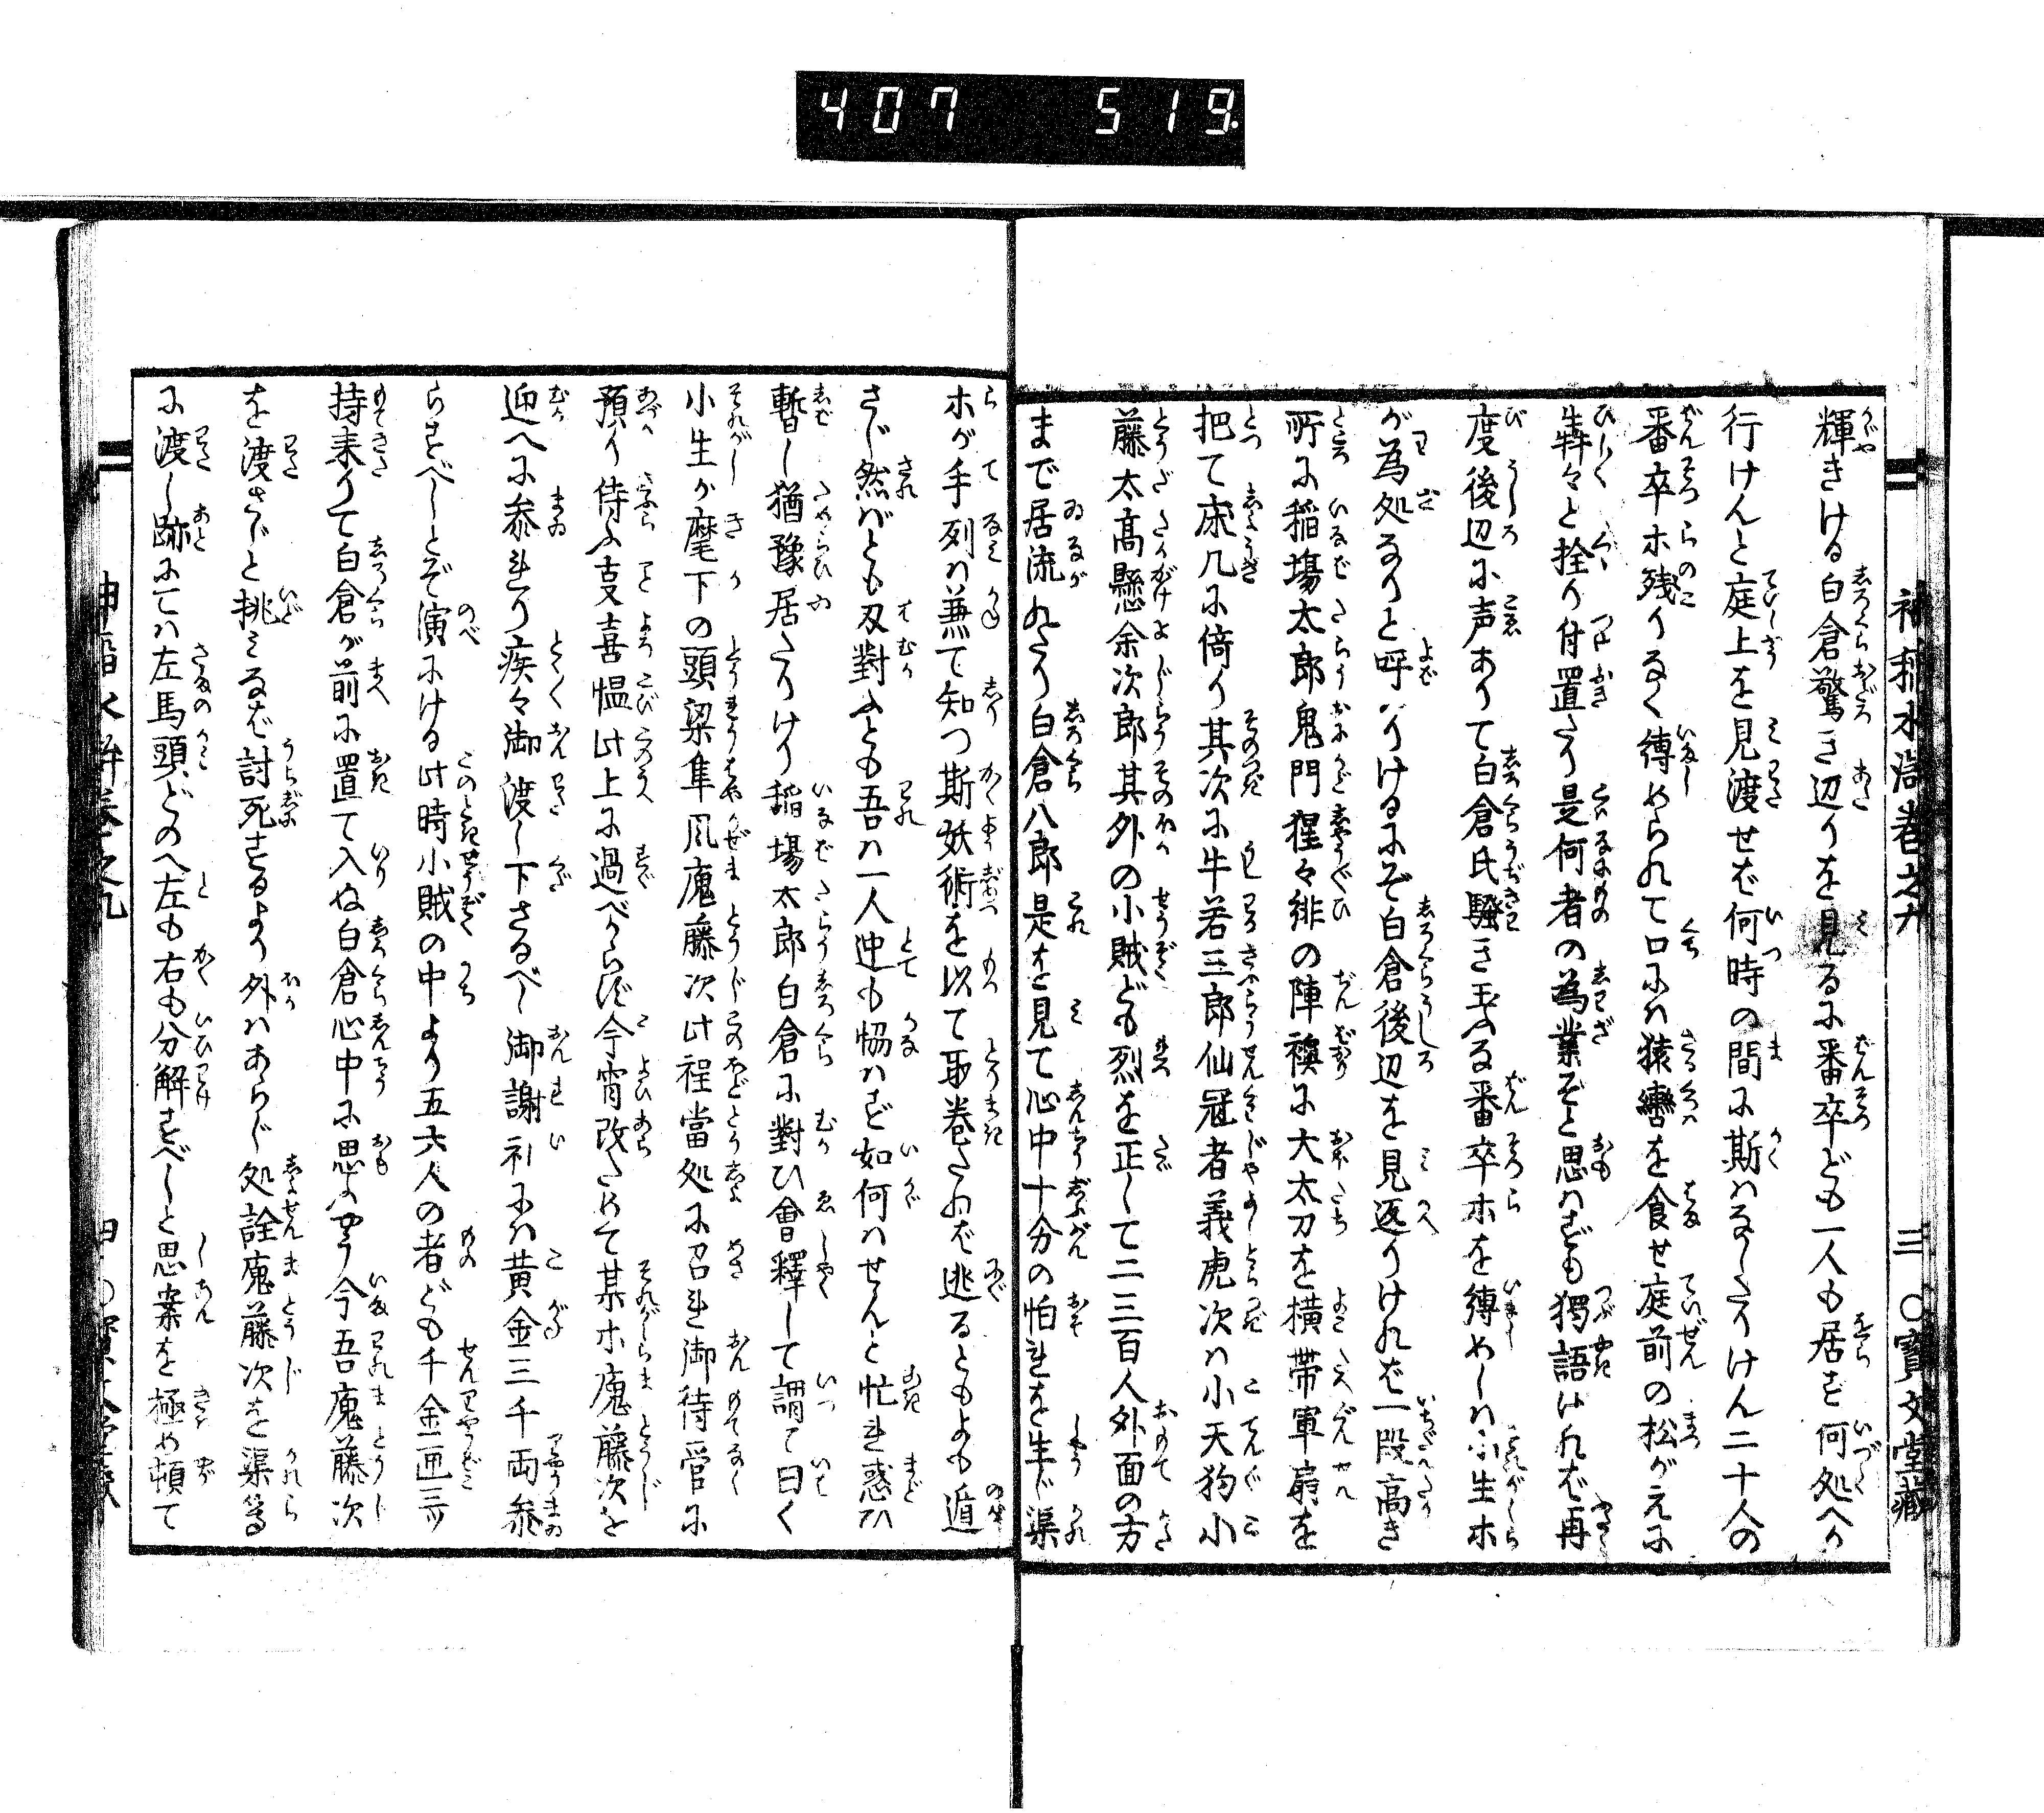 407 519.
輝きける白倉驚き辺りを見るに番卒ども一人も居ず何処へか
行けんと庭上を見渡せば何時の間に斯はなしたりけん二十人の
番卒ホ残りなく縛められて口には猿轡を食せ庭前の松がえに
犇々と拴り付置たり是何者の為業ぞと思はずも獨語けれバ再
度後辺に声ありて白倉氏騒き玉ふな番卒ホを縛めしハ小生ホ
が為処なりと呼りけるにぞ白倉後辺を見返りけれバ一段高き
所に稲場太郎鬼門猩々緋の陣襖に大太刀を横帯軍扇を
把て床几に倚り其次に牛若三郎仙冠者義虎次ハ小天狗小
藤太高懸余次郎其外の小賊ども烈を正して二三百人外面の方
まで居流れたり白倉八郎是を見て心中十分の怕れを生じ渠
ホが手列ハ兼て知つ斯妖術を以て取巻たれバ逃るともよも遁
さじ然バとも刄對ふとも吾ハ一人迚も恊ハず如何ハせんと忙れ惑ひ
暫し猶豫居たりけり稲場太郎白倉に對ひ會釋して謂て曰く
小生が麾下の頭梁隼風魔藤次此程當処に召れ御待管に
預り侍ふ支喜愠此上に過べからず今宵改ためて某ホ魔藤次を
迎へに参れり疾々御渡し下さるべし御謝礼にハ黄金三千両参
らすべしとぞ演にける此時小賊の中より五六人の者ども千金匣三ツ
持来りて白倉が前に置て入ぬ白倉心中に思ふやう今吾魔藤次
を渡さじと挑みなバ討死するより外ハあらじ処詮魔藤次を渠等
に渡し跡にてハ左馬頭どのへ左も右も分解すべしと思案を極め頓て
神稲水滸巻之九 三 ○寶文堂藏